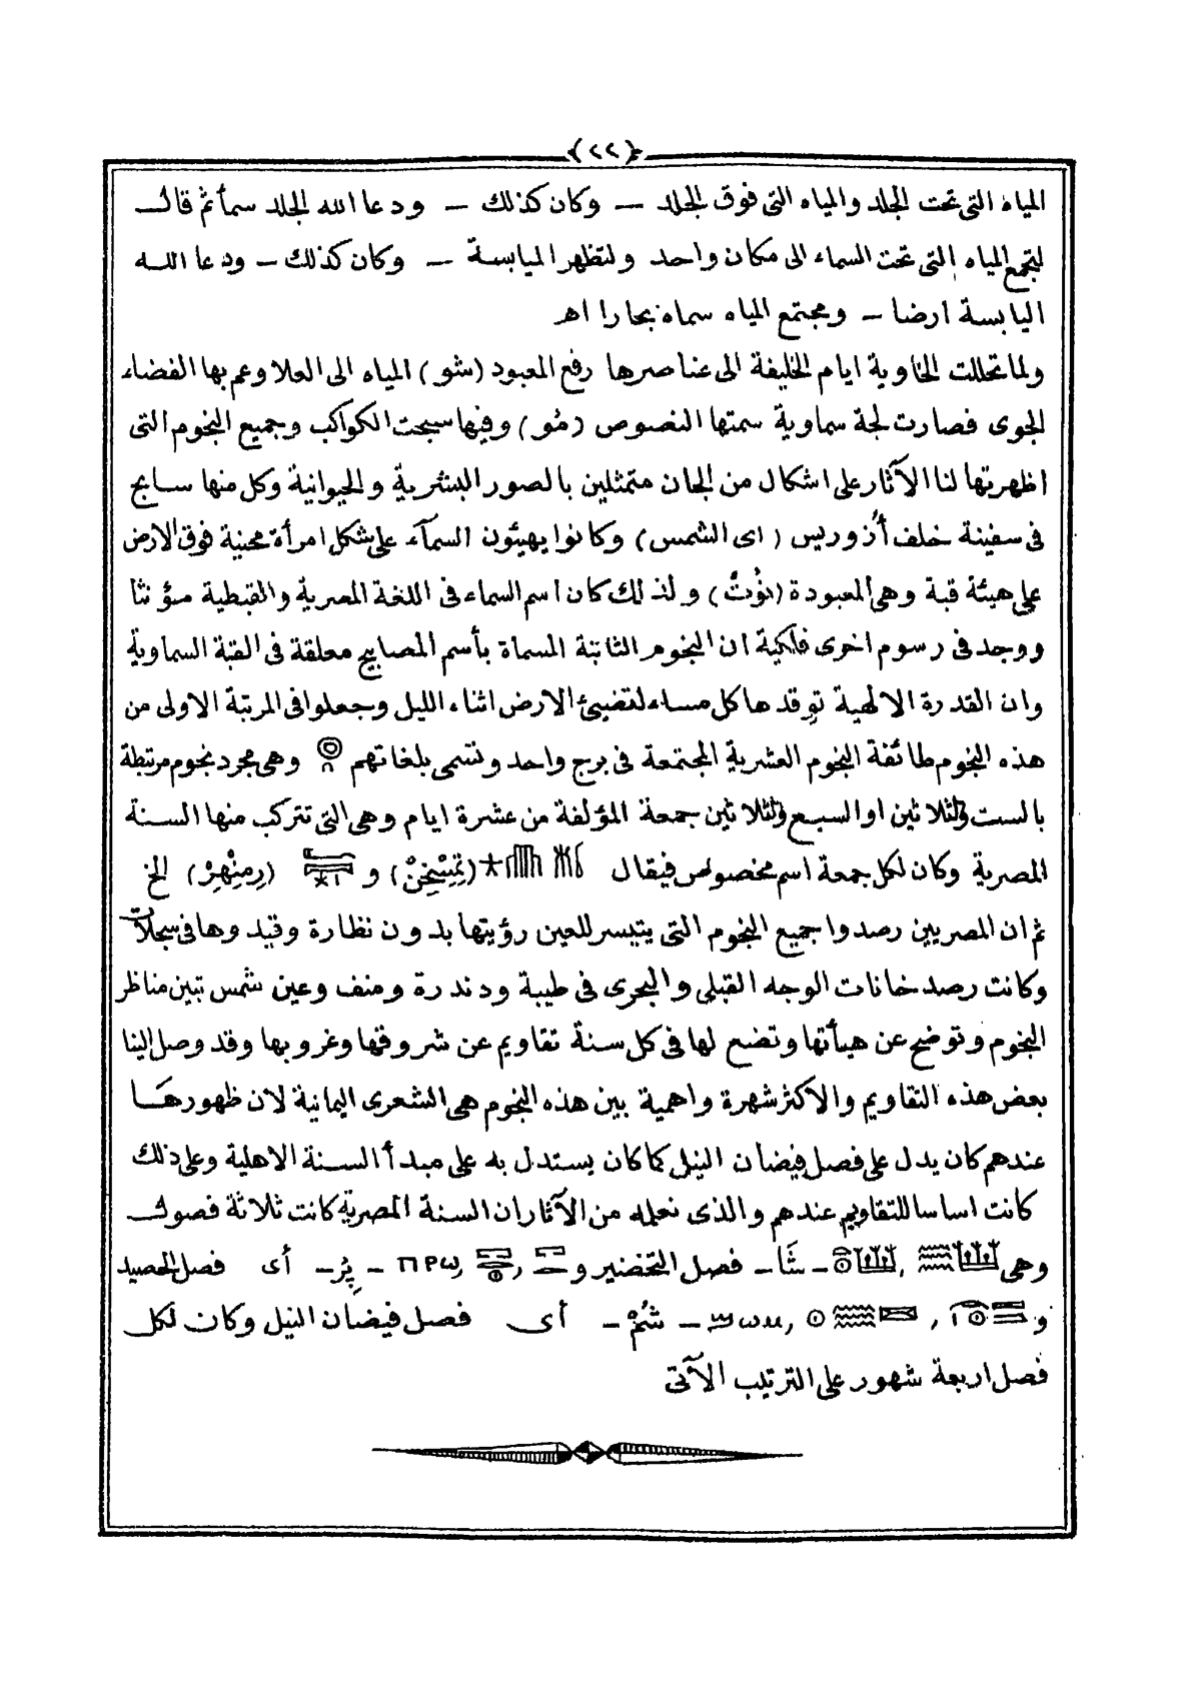 (٢٢)
المياه التى تحت الجلد والمياه التى فوق الجلد — وكان كذلك — ودعا الله الجلد سمأ ثم قال
لتجمع المياه التى تحت السماء الى مكان واحد ولتظهر اليابسة — وكان كذلك — ودعا الله
اليابسة ارضا — ومجتمع المياه سماه بحارا اهـ
ولما تحللت الخاوية ايام الخليفة الى عناصرها رفع المعبود (شو) المياه الى العلا وعم بها الفضاء
الجوى فصارت لجة سماوية سمتها النصوص (مُو) وفيها سبحت الكواكب وجميع النجوم التى
اظهرتها لنا الآثار على اشكال من الجان متمثلين بالصور البشرية والحيوانية وكل منها سابح
فى سفينة خلف أزوريس (اى الشمس) وكانوا يهيئون السمآء على شكل امرأة محنية فوق الارض
على هيئة قبة وهى المعبودة (نُوُتْ) ولذلك كان اسم السماء فى اللغة المصرية والقبطية مؤنثا
ووجد فى رسوم اخرى فلكية ان النجوم الثابتة المسماة بأسم المصابيح معلقة فى القبة السماوية
وان القدرة الالهية توقدها كل مساء لتضيئ الارض اثناء الليل وجعلوا فى المرتبة الاولى من
هذه النجوم طائفة النجوم العشرية المجتمعة فى برج واحد وتسمى بلغاتهم وهى مجرد نجوم مرتبطة
بالست والثلاثين او السبع والثلاثين جمعة المؤلفة من عشرة ايام وهى التى تتركب منها السنة
المصرية وكان لكل جمعة اسم مخصوص فيقال (تِمِسْخِنْ) و (رِمِنْهِرْ) الخ
ثم ان المصريين رصدوا جميع النجوم التى يتيسر للعين رؤيتها بدون نظارة وقيدوها فى سجلات
وكانت رصدخانات الوجه القبلى والبحرى فى طيبة ودندرة ومنف وعين شمس تبين مناظر
النجوم وتوضح عن هيأتها وتضع لها فى كل سنة تقاويم عن شروقها وغروبها وقد وصل الينا
بعض هذه التقاويم والاكثر شهرة واهمية بين هذه النجوم هى الشعرى اليمانية لان ظهورها
عندهم كان يدل على فصل فيضان النيل كما كان يستدل به على مبدأ السنة الاهلية وعلى ذلك
كانت اساسا للتقاويم عندهم والذى نعلمه من الآثار ان السنة المصرية كانت ثلاثة فصول
وهى — شَا — فصل التخضير و ⲡⲣⲱ — پِرُ — أى فصل الحصيد
و — شُمْ — أى فصل فيضان النيل وكان لكل
فصل اربعة شهور على الترتيب الآتى